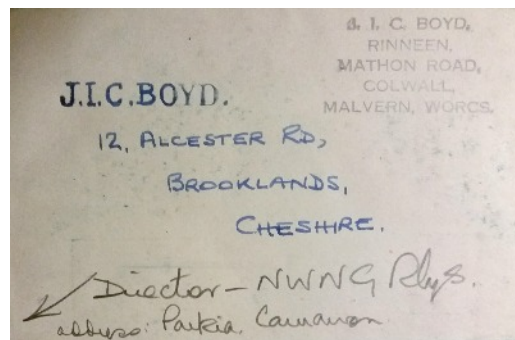 J. I. C. BOYD,
RINNEEN,
MATHON ROAD,
COLWALL,
MALVERN, WORCS.
J.I.C.BOYD.
12, ALCESTER RD,
BROOKLANDS,
CHESHIRE.
Director - NWNG Rlys.
address: Parkia. Carnarvon